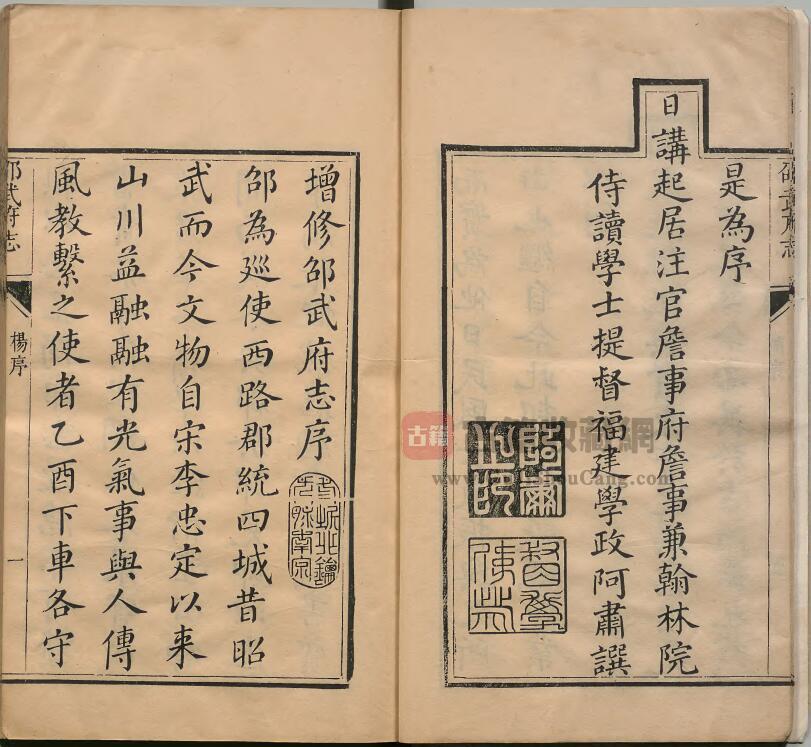 邵武府志
是為序
日講起居注官詹事府詹事兼翰林院
侍讀學士提督福建學政阿肅譔
增修邵武府志序
邵為廵使西路郡統四城昔昭
武而今文物自宋李忠定以来
山川益融融有光氣事與人傳
風教繫之使者乙酉下車各守
邵武府志
楊序
一
古籍